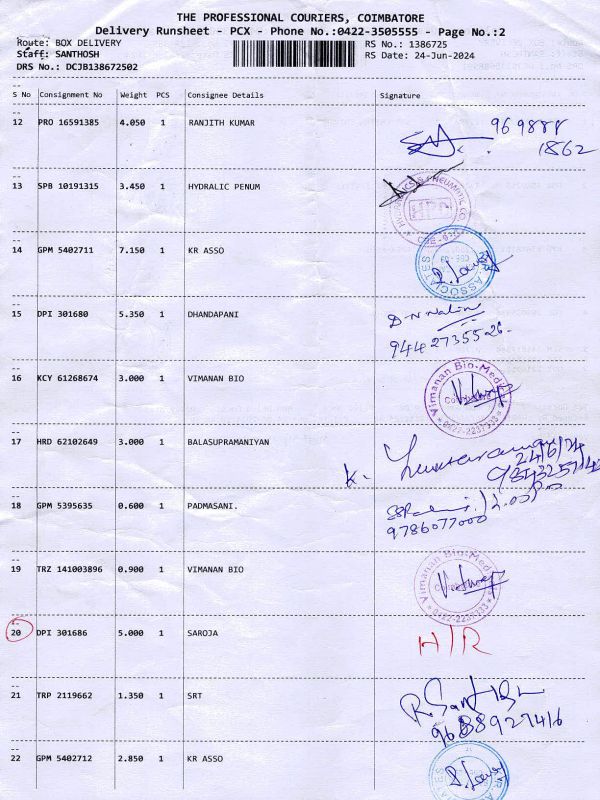 THE PROFESSIONAL COURIERS, COIMBATORE
Delivery Runsheet - PCX - Phone No.:0422-3505555 - Page No.:2
Route: BOX DELIVERY RS No.: 1386725
Staff: SANTHOSH RS Date: 24-Jun-2024
DRS No.: DCJB138672502
S No Consignment No Weight PCS Consignee Details Signature
12 PRO 16591385 4.050 1 RANJITH KUMAR 969888
1862
13 SPB 10191315 3.450 1 HYDRALIC PENUM
HPC
14 GPM 5402711 7.150 1 KR ASSO
ASSOCIATES
15 DPI 301680 5.350 1 DHANDAPANI D-N Nalini
9442735526.
16 KCY 61268674 3.000 1 VIMANAN BIO
Vimanan Bio-Medical
17 HRD 62102649 3.000 1 BALASUPRAMANIYAN K.
24/6/24
18 GPM 5395635 0.600 1 PADMASANI.
9786077000
19 TRZ 141003896 0.900 1 VIMANAN BIO
Vimanan Bio-Medical
20 DPI 301686 5.000 1 SAROJA H/R
21 TRP 2119662 1.350 1 SRT
9688927416
22 GPM 5402712 2.850 1 KR ASSO